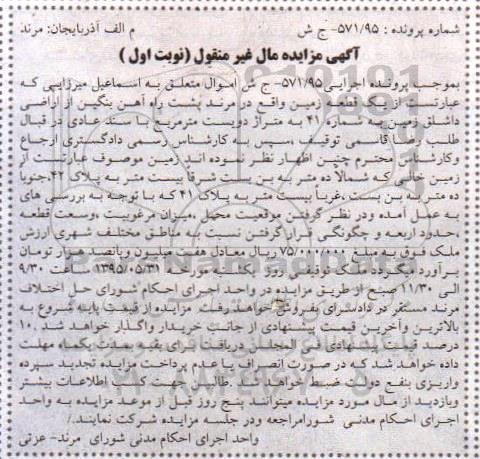 شماره پرونده : ۵۷۱/۹۵- ج ش م الف آذربایجان: مرند
آگهی مزایده مال غیر منقول (نوبت اول )
بموجب پرونده اجرایی ۵۷۱/۹۵- ج ش اموال متعلق به اسماعیل میرزایی که
عبارتست از یک قطعه زمین واقع در مرند پشت راه آهن بنگین از اراضی
داشلق زمین پلاک ۴۱ به متراژ دویست مترمربع با سند عادی در قبال
طلب رضا قاسمی توقیف ،سپس به کارشناس رسمی دادگستری ارجاع
وکارشناس محترم چنین اظهار نظر نموده اند زمین موصوف عبارتست از
زمین خالی که شمالاً ده متر به بن بست شرقاً بیست متر به پلاک ۴۲،جنوبا
ده متر به بن بست ،غرباً بیست متر به پلاک ۴۱ که با توجه به بررسی های
به عمل آمده ودر نظر گرفتن موقعیت محل ،میزان مرغوبیت ،وسعت قطعه
حدود اربعه و چگونگی قرار گرفتن نسبت به مناطق مختلف شهری ارزش
ملک فوق به مبلغ ۷۵/۰۰۰/۰۰۰ ریال معادل هفت میلیون وپانصد هزار تومان
برآورد میگردد ملک توقیفی روز یکشنبه مورخه ۱۳۹۵/۰۵/۳۱ ساعت ۹/۳۰
الی ۱۱/۳۰ صبح از طریق مزایده در واحد اجرای احکام شورای حل اختلاف
مرند مستقر در دادسرای بفروش خواهد رفت. مزایده از قیمت پایه شروع به
بالاترین وآخرین قیمت پیشنهادی از جانب خریدار واگذار خواهد شد .۱۰
درصد قیمت پیشنهادی فی المجلس دریافت برای بقیه بمدت یکماه مهلت
داده خواهد شد که در صورت انصراف یا عدم پرداخت مزایده تجدید سپرده
واریزی بنفع دولت ضبط خواهد شد .طالبین جهت کسب اطلاعات بیشتر
وبازدید از مال مورد مزایده میتوانند پنج روز قبل از موعد مزایده به واحد
اجرای احکام مدنی شورامراجعه ودر جلسه مزایده شرکت نمایند./
واحد اجرای احکام مدنی شورای مرند- عزتی